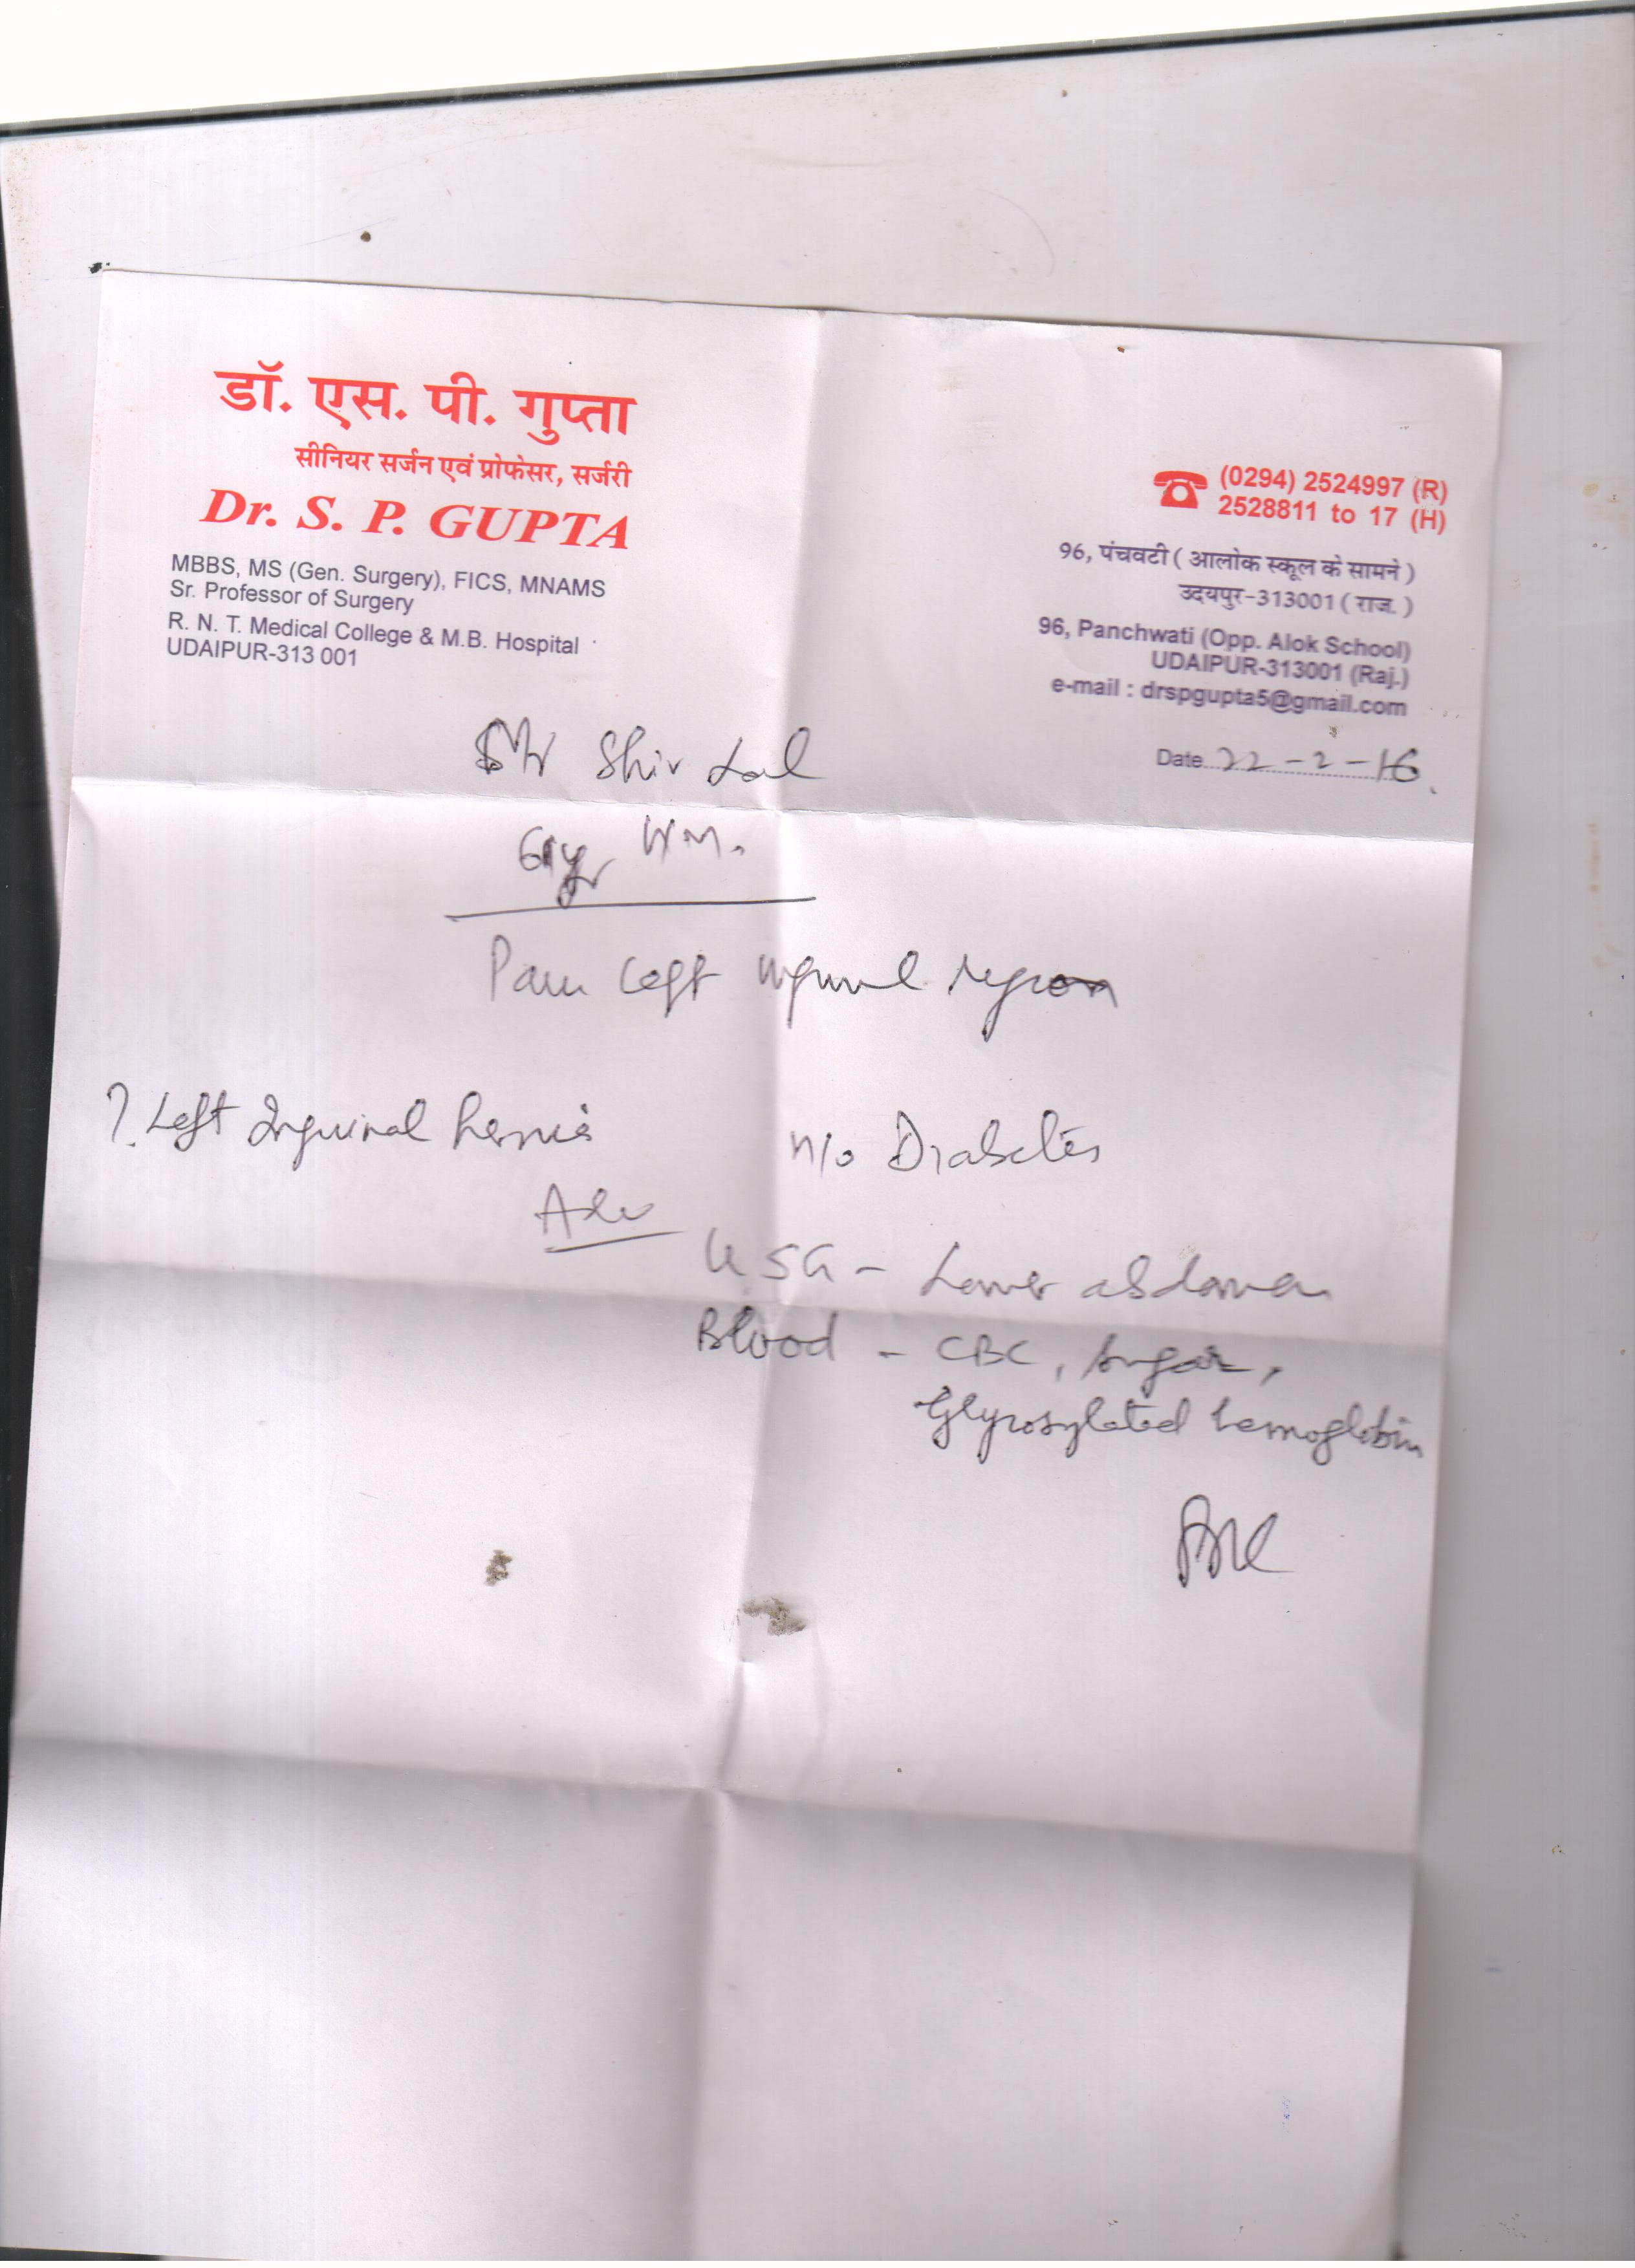 डॉ. एस. पी. गुप्ता
सीनियर सर्जन एवं प्रोफेसर, सर्जरी
Dr. S. P. GUPTA
MBBS, MS (Gen. Surgery), FICS, MNAMS
Sr. Professor of Surgery
R. N. T. Medical College & M.B. Hospital
UDAIPUR-313 001
(0294) 2524997 (R)
2528811 to 17 (H)
96, पंचवटी ( आलोक स्कूल के सामने )
उदयपुर-313001 ( राज. )
96, Panchwati (Opp. Alok School)
UDAIPUR-313001 (Raj.)
e-mail : drspgupta5@gmail.com
Date 22-2-16
Shiv Lal
Pain Left inguinal region
? Left Inguinal hernia
H/o Diabetes
Adv
USG - Lower abdomen
Blood - CBC, Sugar,
Glycosylated hemoglobin